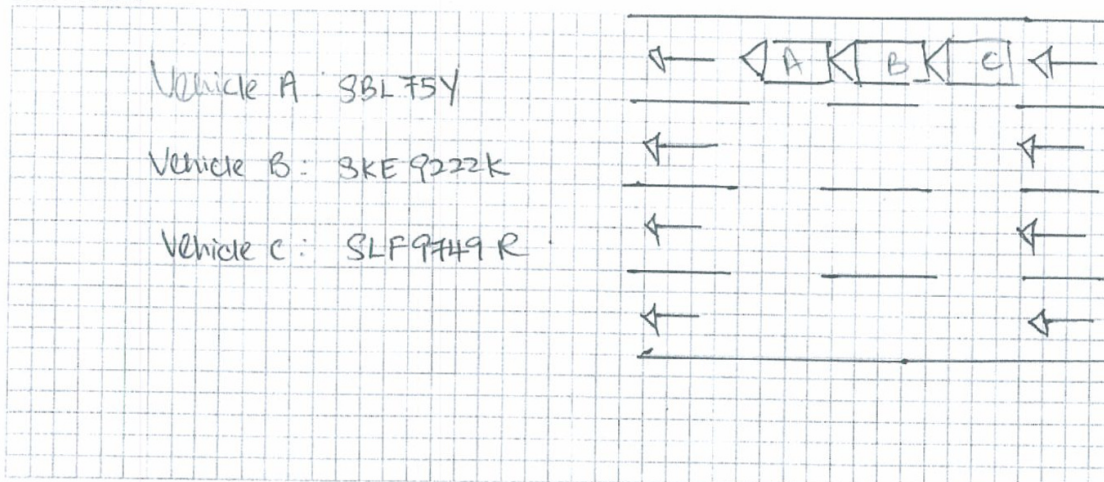 Vehicle A: SBL75Y
A B C
Vehicle B: SKE9222K
Vehicle C: SLF9749R